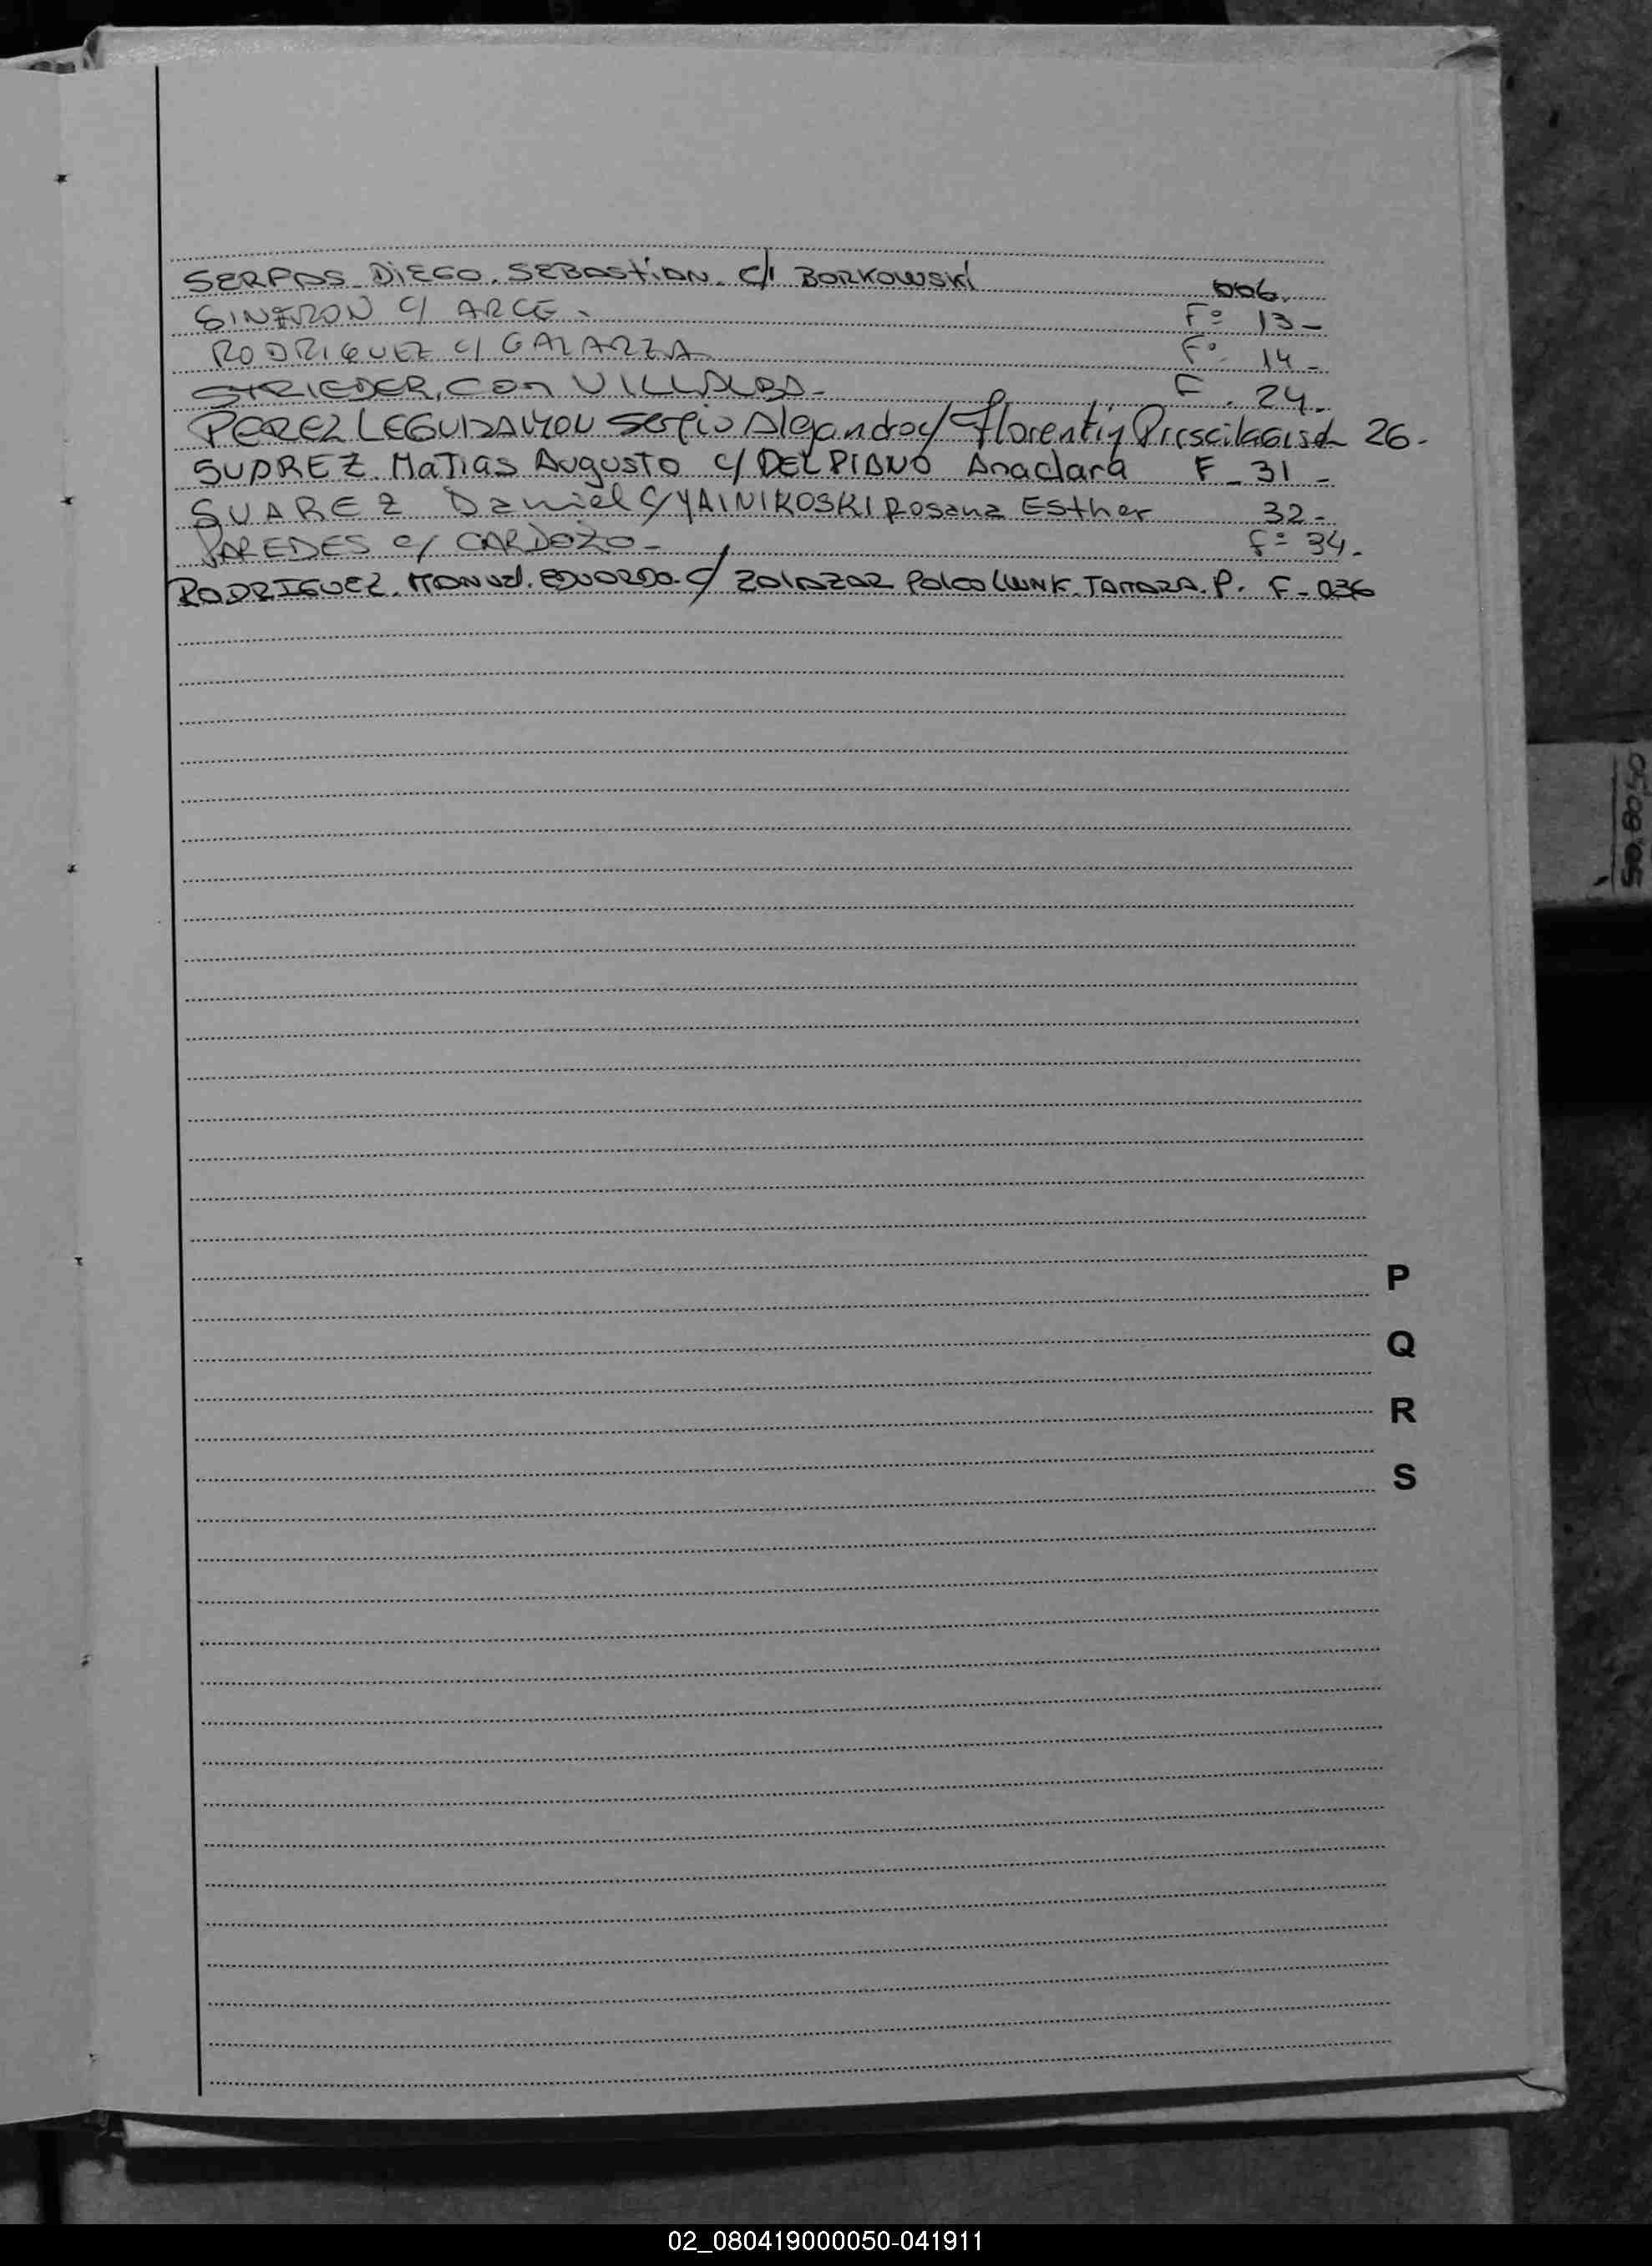 SERPAS DIEGO. SEBASTIAN. C/ BORKOWSKI 006.
SINFRON C/ ARCE. Fº 13-
RODRIGUEZ C/ GALARZA Fº 14-
STRIEDER, CON VILLALBA- F. 24.
PEREZ LEGUIZAMON Sergio Alejandro c/ Florentin 26-
SUAREZ MATIAS Augusto C/ DEL PIANO Anaclara F- 31-
SUAREZ Daniel C/ YAINIKOSKI Rosana Esther 32-
PAREDES C/ CARDOZO- Fº 34.
RODRIGUEZ. MANUEL. EDUARDO. C/ ZALAZAR TAMARA. P. F- 036
P
Q
R
S
02_080419000050-041911